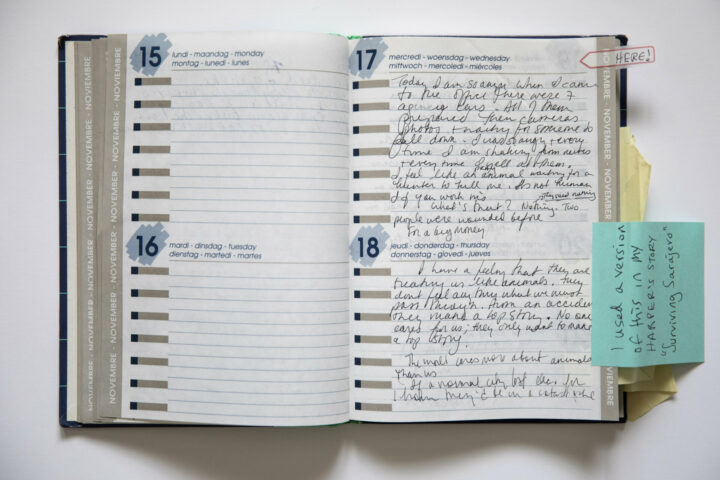 15
lundi - maandag - monday
montag - lunedi - lunes
NOVIEMBRE · NOVEMBER · NOVEMBRE
16
mardi - dinsdag - tuesday
dienstag - martedi - martes
17
mercredi - woensdag - wednesday
mittwoch - mercoledi - miércoles
HERE!
Today I am so angry when I came
to the office there were 7
agency cars. All of them
prepared their cameras
photos + waiting for someone to
fall down. I was so angry + every
time I am shaking from nerves
+ every time I yell at them.
I feel like an animal waiting for a
hunter to kill me. Its not human
if you work this
What's that? Nothing. Two
people were wounded before
For a big money
18
jeudi - donderdag - thursday
donnerstag - giovedi - jueves
I have a feeling that they are
treating us like animals. They
don't feel anything what we must
pass through. From an accident
they make a top story. No one
cares for us, they only want to make
a top story.
The world cares more about animals
than us
If a normal city lost elec. for
1 hour they'd be in a catastrophe
NOVEMBRE
I used a version
of this in my
HARPER'S STORY
"Surviving Sarajevo"